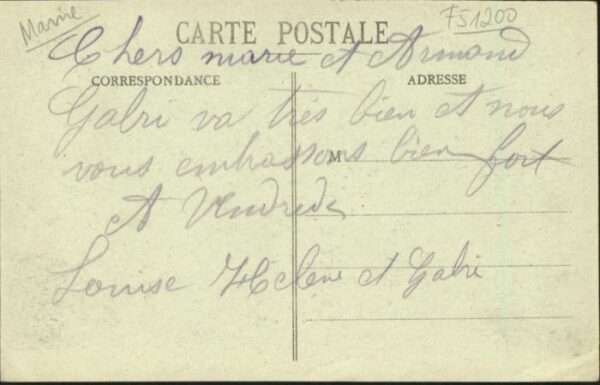 Marne
F51200
CARTE POSTALE
Chers marie et Armand
CORRESPONDANCE
ADRESSE
Gabri va très bien et nous
vous embrassons bien fort
M
A Vendredi
Louise Helene et Gabri